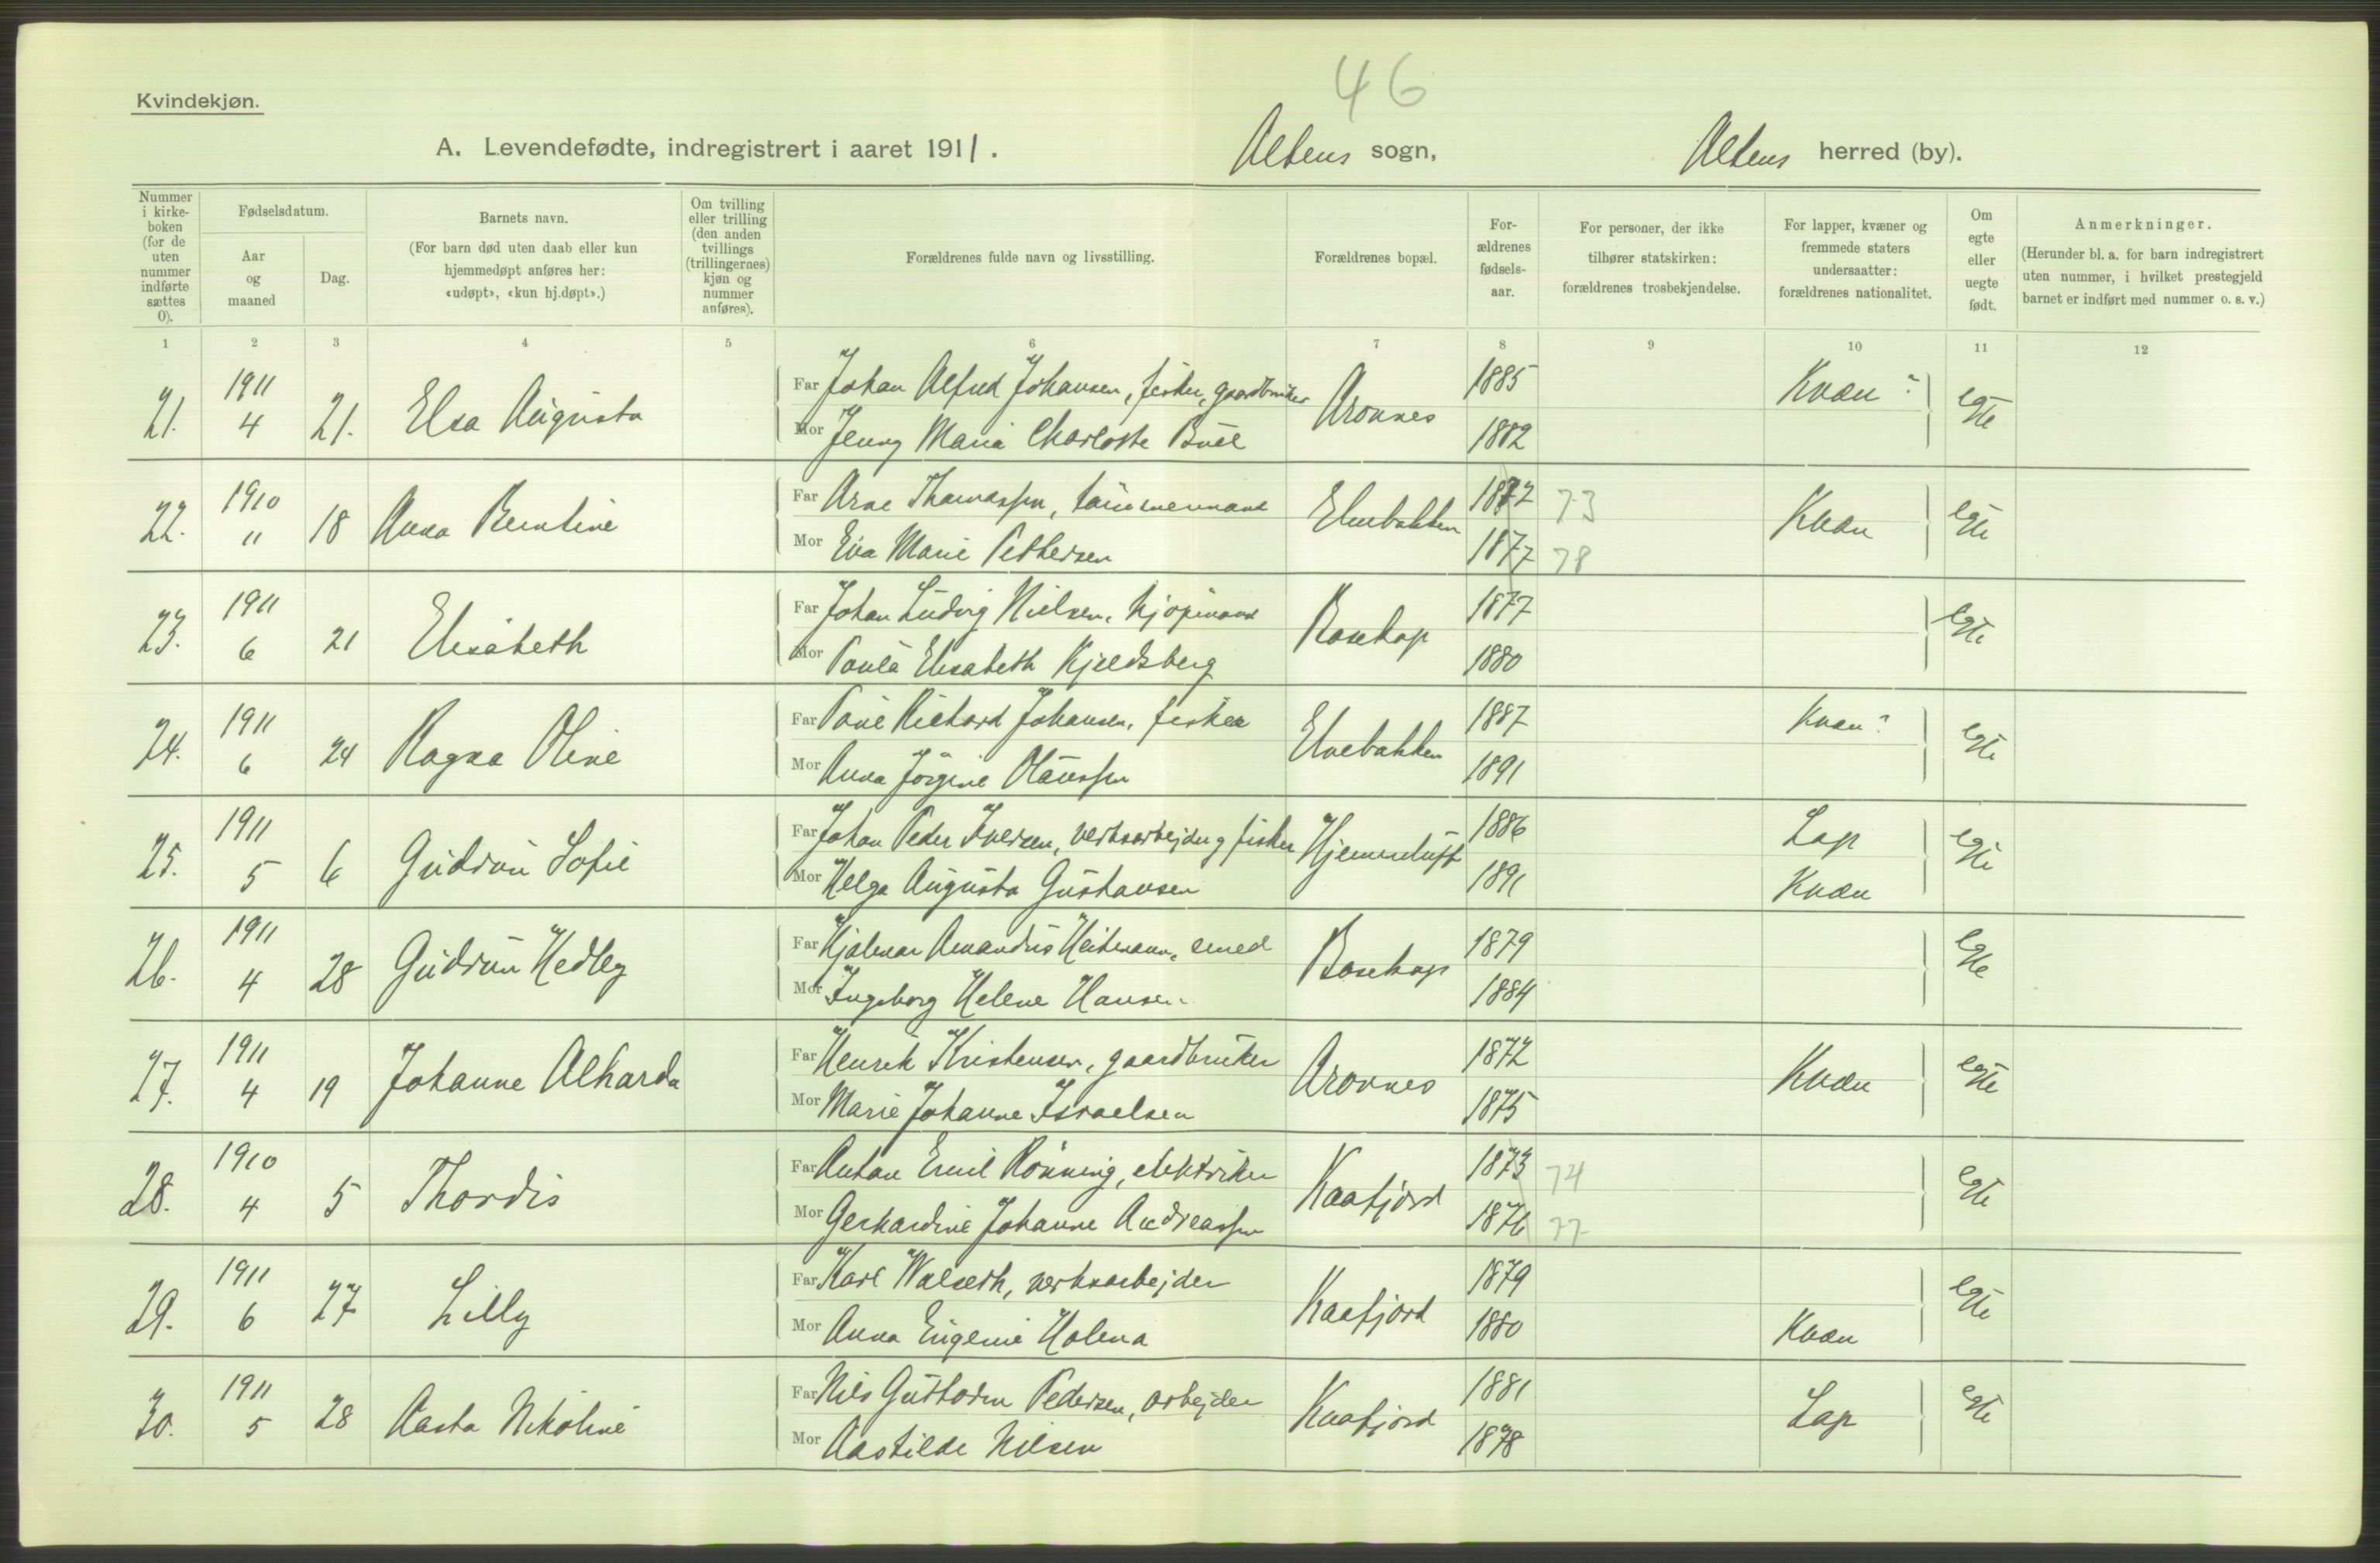 46
Kvindekjøn.
A. Levendefødte, indregistrert i aaret 1911. Altens sogn, Altens herred (by).
Nummer i kirkeboken (for de uten nummer indførte sættes 0).
Fødselsdatum.
Aar og maaned
Dag.
Barnets navn.
(For barn død uten daab eller kun hjemmedøpt anføres her: «udøpt», «kun hj.døpt».)
Om tvilling eller trilling (den anden tvillings (trillingernes) kjøn og nummer anføres).
Forældrenes fulde navn og livsstilling.
Forældrenes bopæl.
Forældrenes fødselsaar.
For personer, der ikke tilhører statskirken: forældrenes trosbekjendelse.
For lapper, kvæner og fremmede staters undersaatter: forældrenes nationalitet.
Om egte eller uegte født.
Anmerkninger.
(Herunder bl. a. for barn indregistrert uten nummer, i hvilket prestegjeld barnet er indført med nummer o. s. v.)
1 2 3 4 5 6 7 8 9 10 11 12
21. 1911 4 21. Elsa Augusta
Far Johan Alfred Johansen, fisker, gaardbruker Aronnes 1885 Kvæn ? egte
Mor Jenny Maria Charlotte Buél 1882
22. 1910 11 18 Anna Berntine
Far Arne Thomassen, tømmermand Elvebakken 1872 73 Kvæn egte
Mor Eva Marie Pettersen 1877 78
23. 1911 6 21 Elisabeth
Far Johan Ludvig Nielsen, kjøpmand Bosekop 1877 egte
Mor Paula Elisabeth Kjeldsberg 1880
24. 1911 6 24 Ragna Oline
Far Poul Richard Johansen, fisker Elvebakken 1887 Kvæn ? egte
Mor Anna Jørgine Olaussen 1891
25. 1911 5 6 Gudrun Sofie
Far Johan Peder Iversen, verksarbejder og fisker Hjemmeluft 1886 Lap egte
Mor Helga Augusta Gustavsen 1891 Kvæn
26. 1911 4 28 Gudrun Hedley
Far Hjalmar Amandus Heitmann, smed Bosekop 1879 egte
Mor Ingeborg Helene Hansen 1884
27. 1911 4 19 Johanne Alharda
Far Henrik Kristensen, gaardbruker Aronnes 1872 Kvæn egte
Mor Marie Johanne Israelsen 1875
28. 1910 4 5 Thordis
Far Anton Emil Rønning, elektriker Kaafjord 1873 74 egte
Mor Gerhardine Johanne Andreassen 1876 77
29. 1911 6 27 Lilly
Far Karl Walseth, verksarbejder Kaafjord 1879 egte
Mor Anna Eugenie Holma 1880 Kvæn
30. 1911 5 28 Aasta Nikoline
Far Nils Gustav Pedersen, arbejder Kaafjord 1881 Lap egte
Mor Aastilde Nilsen 1878